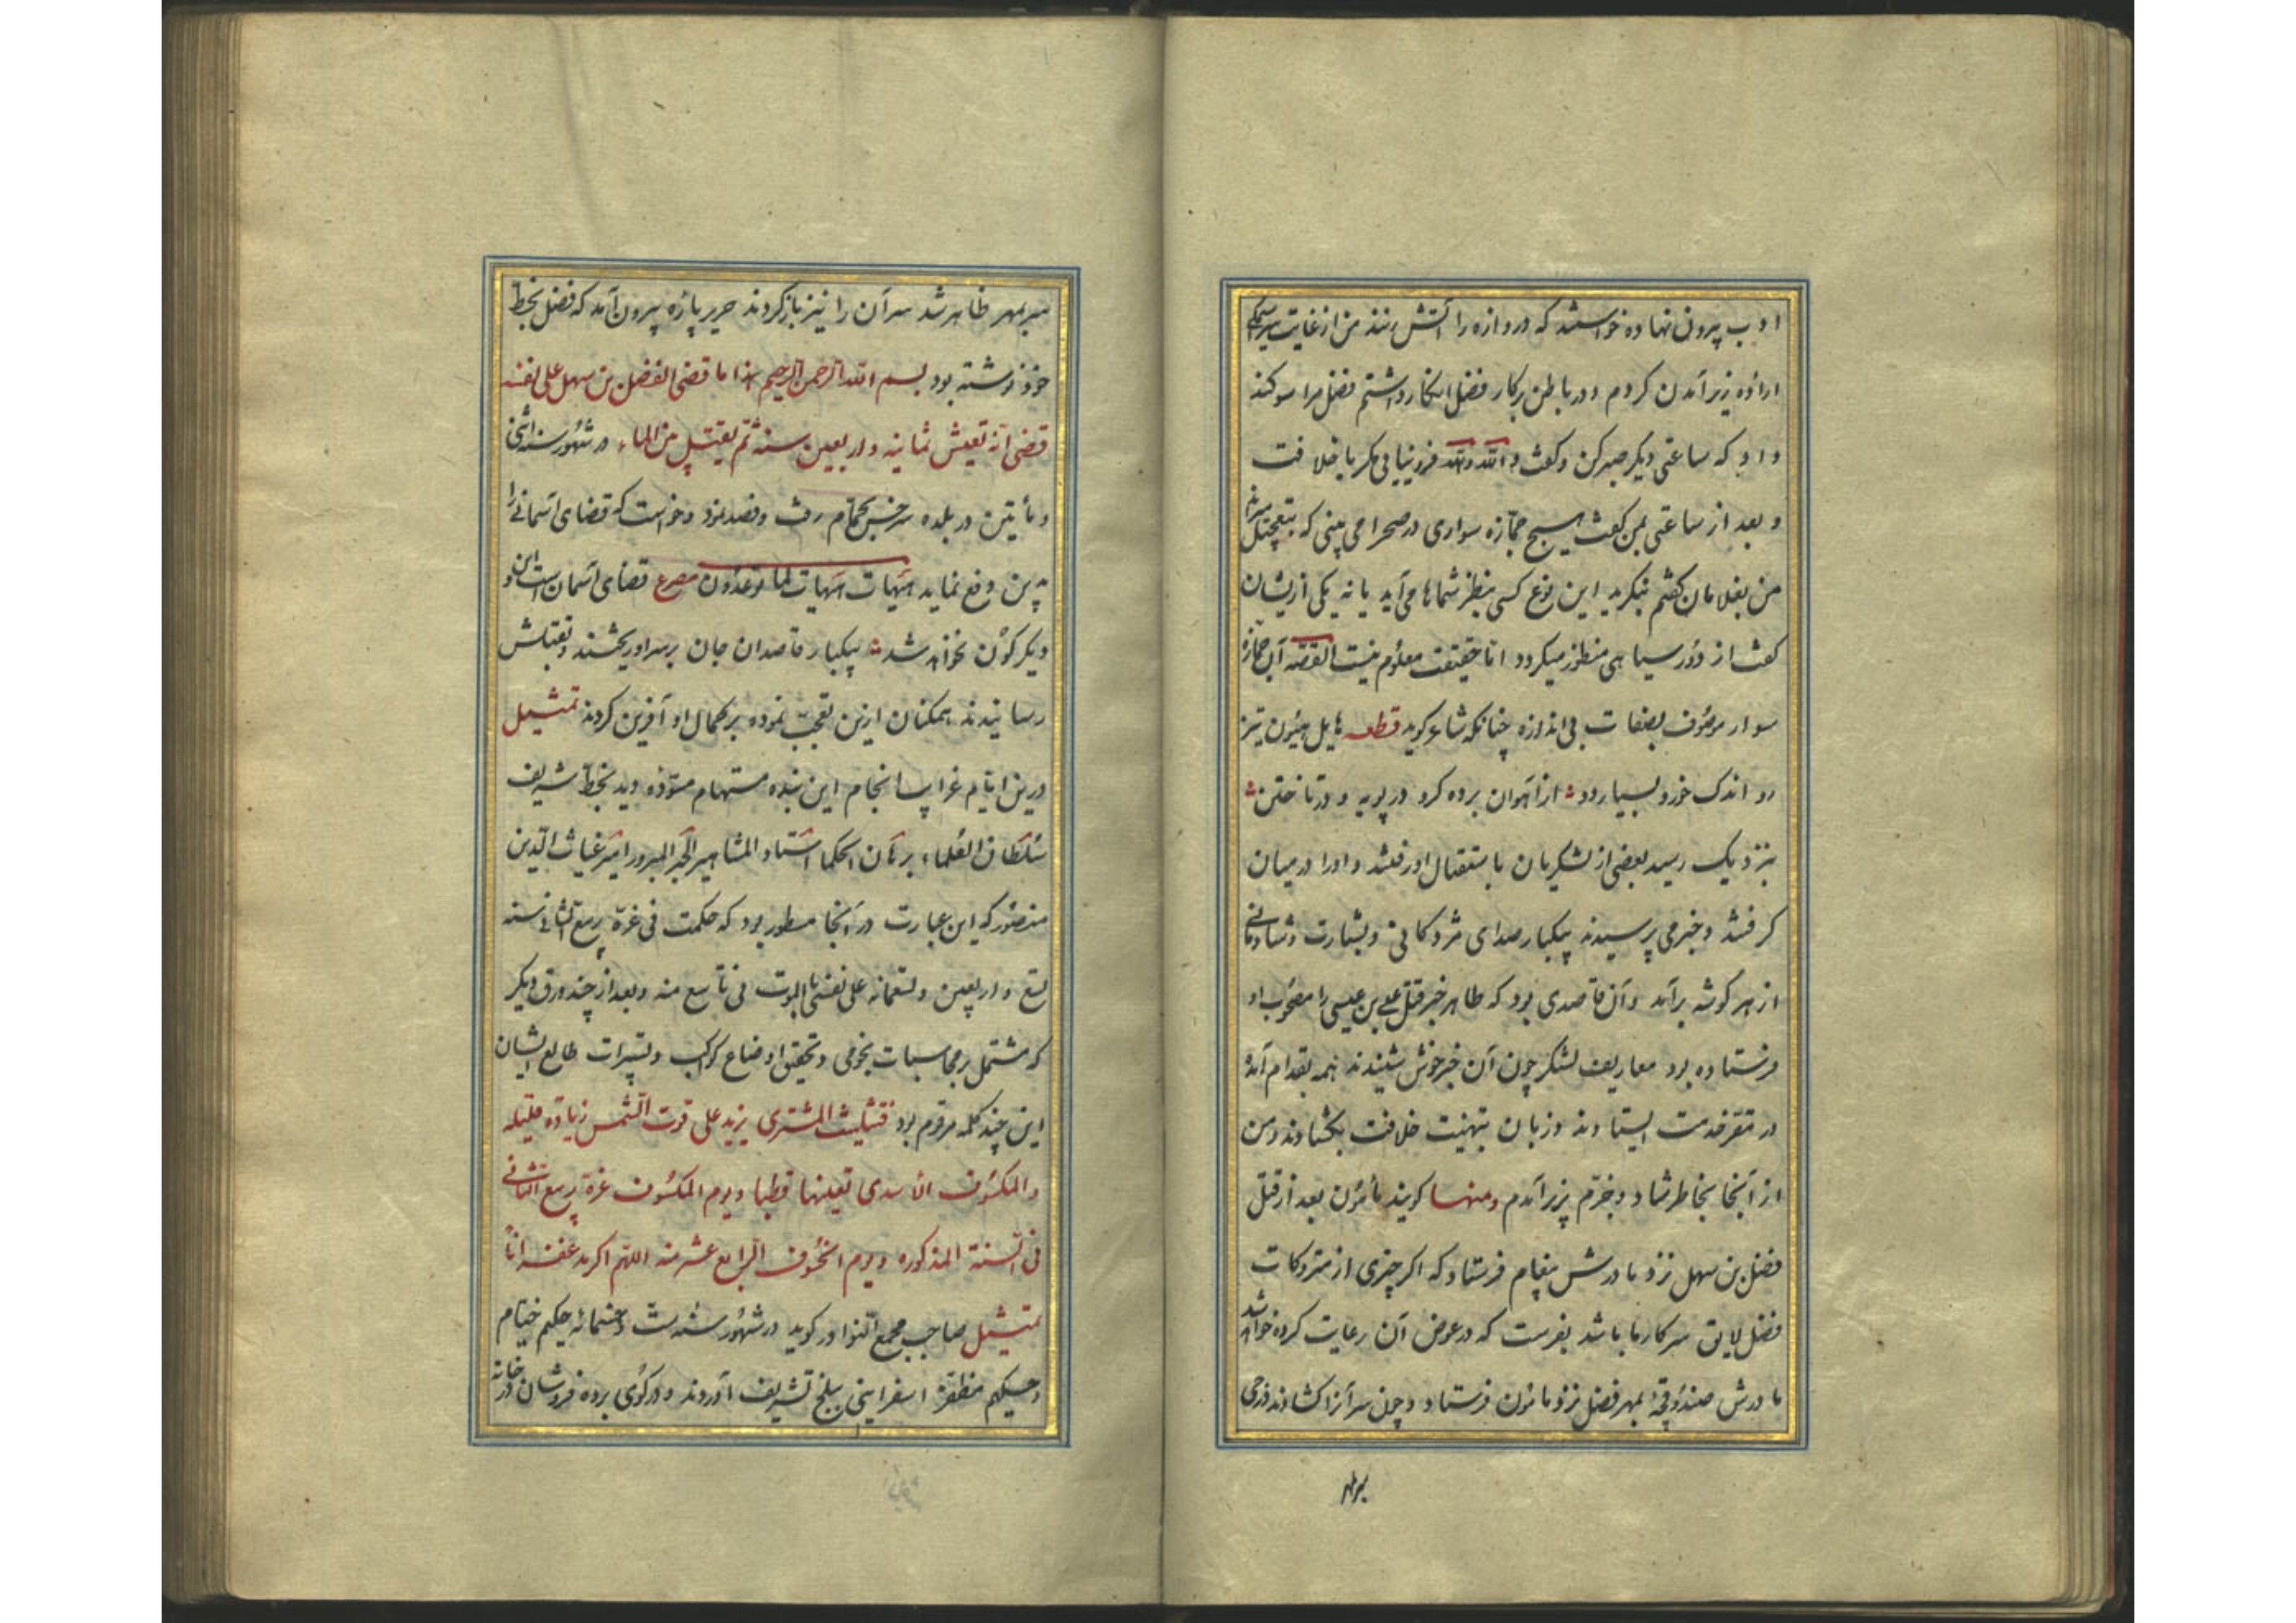 ادب بیرون نهاده خواستند که دروازه را آتش زنند من از غایت
اراده زیر آمدن کردم و در باطن بر کار فضل انکار داشتم فضل مرا سوکند
داد که ساعتی دیکر صبر کن و کفت والله والله فرو نیایی مکر با خلافت
و بعد از ساعتی بمن کفت هیچ جمازه سواری در صحرا می بینی که بتعجیل
من بغلامان کفتم بنکرید این نوع کسی بنظر شماها می آید یا نه یکی ازیشان
کفت از دور سیاهی منظور میکردد اما حقیقت معلوم نیست القصه آن جمازه
سوار موصوف بصفات بی اندازه چنانکه شاعر کوید قطعه هایل هیون تیز
رو اندک خور و بسیار دو از آهوان برده کرو در پویه و در تاختن
بنزدیک رسید بعضی از لشکریان باستقبال او رفتند و او را در میان
کرفتند و خبر می پرسیدند بیکبار صدای مژدکانی و بشارت و شادمانی
از هر کوشه برآمد و آن قاصدی بود که طاهر خبر قتل علی بن عیسی را مصحوب او
فرستاده بود معاریف لشکر چون آن خبر خوش شنیدند همه بقدام آمده
در مقر خدمت ایستادند و زبان بتهنیت خلافت بکشادند و من
از آنجا بخاطر شاد و خرم بزیر آمدم ومنها کویند مأمون بعد از قتل
فضل بن سهل نزد مادرش پیغام فرستاد که اکر چیزی از متروکات
فضل لایق سرکار ما باشد بفرست که در عوض آن رعایت کرده خواهد شد
مادرش صندوقچهٔ بمهر فضل نزد مامون فرستاد و چون سر آنرا کشادند درجی
سربمهر
سربمهر ظاهر شد سر آن را نیز باز کردند حریر پاره بیرون آمد که فضل بخط
خود نوشته بود بسم الله الرحمن الرحیم هذا ما قضی الفضل بن سهل علی نفسه
قضی انه تعیش ثمانیه و اربعین سنه ثم یقتل من الماء در شهور سنه اثنی
و مأیتین در بلده سرخس بحمام رفت و فصد نمود و خواست که قضای آسمانی را
به این دفع نماید هیهات هیهات لما توعدون مصرع قضای آسمان است این و
دیکر کون نخواهد شد بیکبار قاصدان جان بر سر او ریختند و بقتلش
رسانیدند همکنان ازین تعجب نموده بر کمال او آفرین کردند تمثیل
درین ایام غرا بسانجام این بنده مستهام مسوده دید بخط شریف
سلطان العلماء برهان الحکما استاد المشاهیر الحبر المبرور امیر غیاث الدین
منصور که این عبارت در آنجا مسطور بود که حکمت فی غرة ربیع الثانی سنه
تسع و اربعین و تسعمائه علی نفسی بالموت فی تاسع منه و بعد از چند ورق دیکر
که مشتمل بر محاسبات نجومی و تحقیق اوضاع کواکب و تسییرات طالع ایشان
این چند کلمه مرقوم بود فتثلیث المشتری یزید علی قوت الشمس زیادة قلیله
والمکسوف الاسدی تعینها قطبا و یوم المکسوف غرة ربیع الثانی
فی السنة المذکوره و یوم الخسوف الرابع عشر منه اللهم اکرمه غفرانا
تمثیل صاحب مجمع النوادر کوید در شهور سنه ست و خمسمائه حکیم خیام
و حکیم مظفر اسفراینی ببلخ تشریف آوردند و در کوی برده فروشان در خانه